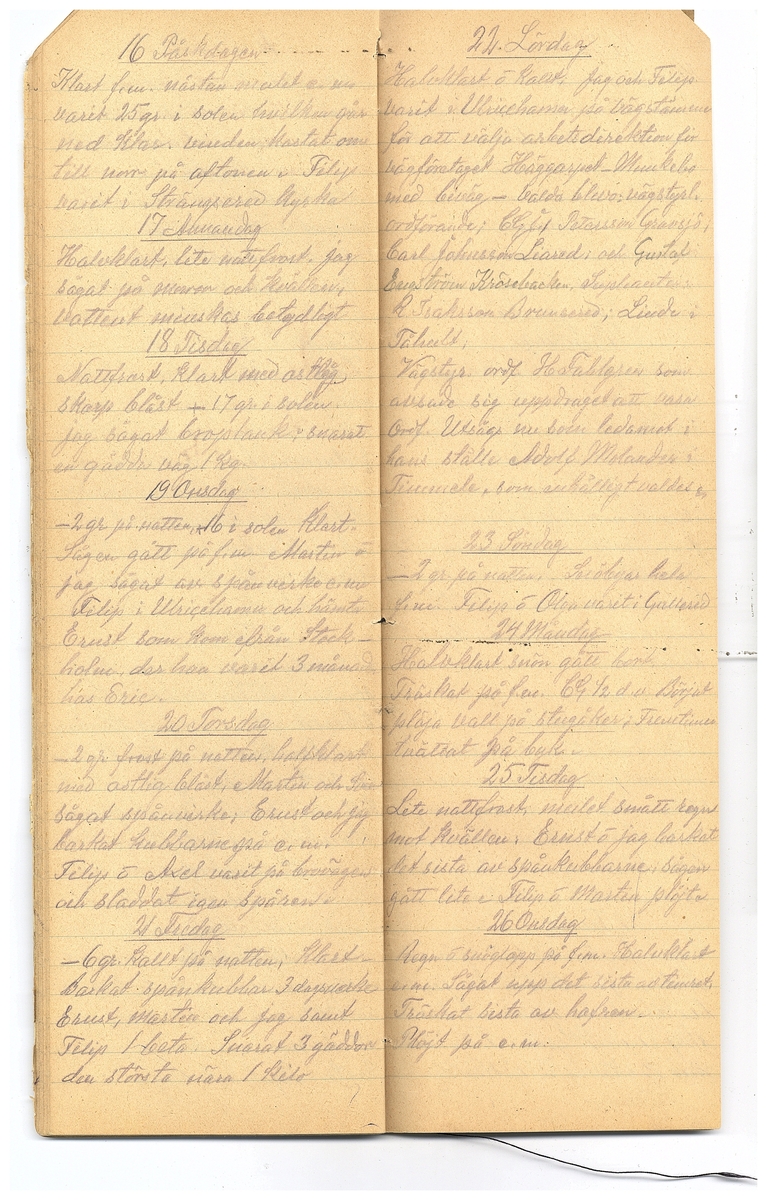 16 Påskdagen
Klart f.m. nästan mulet e.m
varit 25 gr. i solen hvilken går
ned klar. vinden kastat om
till norr på aftonen. Filip
varit i Strängsered kyrka
17 Annandag
Halvklart, lite nattfrost. jag
sågat på moron och kvällen,
vattent minskas betydligt
18 Tisdag
Nattfrost, klart med ostlig
skarp blåst + 17 gr. i solen.
jag sågat broplank, snarat
en gädda väg. 1 kg.
19 Onsdag
-2 gr. på natten, +16 i solen klart.
Sågen gått på f.m. Martin o
jag, sågat av spånvirke e.m
Filip i Ulricehamn och hämta
Ernst som kom från Stock-
holm, der han varit 3 månad
hos Eric.
20 Torsdag
-2 gr. frost på natten, halfklart
med ostlig blåst, Martin och
sågat spånvirke; Ernst och jag
barkat kubbarne på e.m.
Filip o Axel varit på brovägen
och sladdat igen spåren.
21 Fredag
-6 gr. kallt på natten, klart-
Barkat spånkubbar 3 dagsverke
Ernst, Martin och jag samt
Filip 1 beta. Snarat 3 gäddor
den största nära 1 kilo
22. Lördag
Halvklart o kallt, jag och Filip
varit i Ulricehamn på vägstämma
för att välja arbetsdirektion för
vägföretaget Häggarpet-Munkebo
med biväg - valda blevo; vägstyrl.
ordförande; Petersson Gransjö,
Carl Johnsson Liared; och Gustaf
Engström Krösebacken, Suppleanter:
K Isaksson Brunsered; Linde i
Tåhult.
Vägstyr. ordf. H Fallgren som
avsade sig uppdraget att vara
ordf. Utsågs nu som ledamot i
hans ställe Adolf Molander i
Timmele, som enhälligt valdes
23 Söndag
-2 gr. på natten. Snöbyar hela
f.m. Filip o Olga varit i Gullered
24 Måndag
Halvklart snön gått bort.
Träskat på f.m. 1/2 d.v. Börjat
plöja vall på stugåker; Fruntimm
tvättat på byk.
25 Tisdag
Lete nattfrost, mulet smått regn
mot kvällen. Ernst o jag barkat
det sista av spånkubbarne, sågen
gått lite. Filip o Martin plöjt
26 Onsdag
Regn o snöglopp på f.m. Halvklart
e.m. Sågat upp det sista av timret.
Träskat sista av hafren.
Plöjt på e.m.